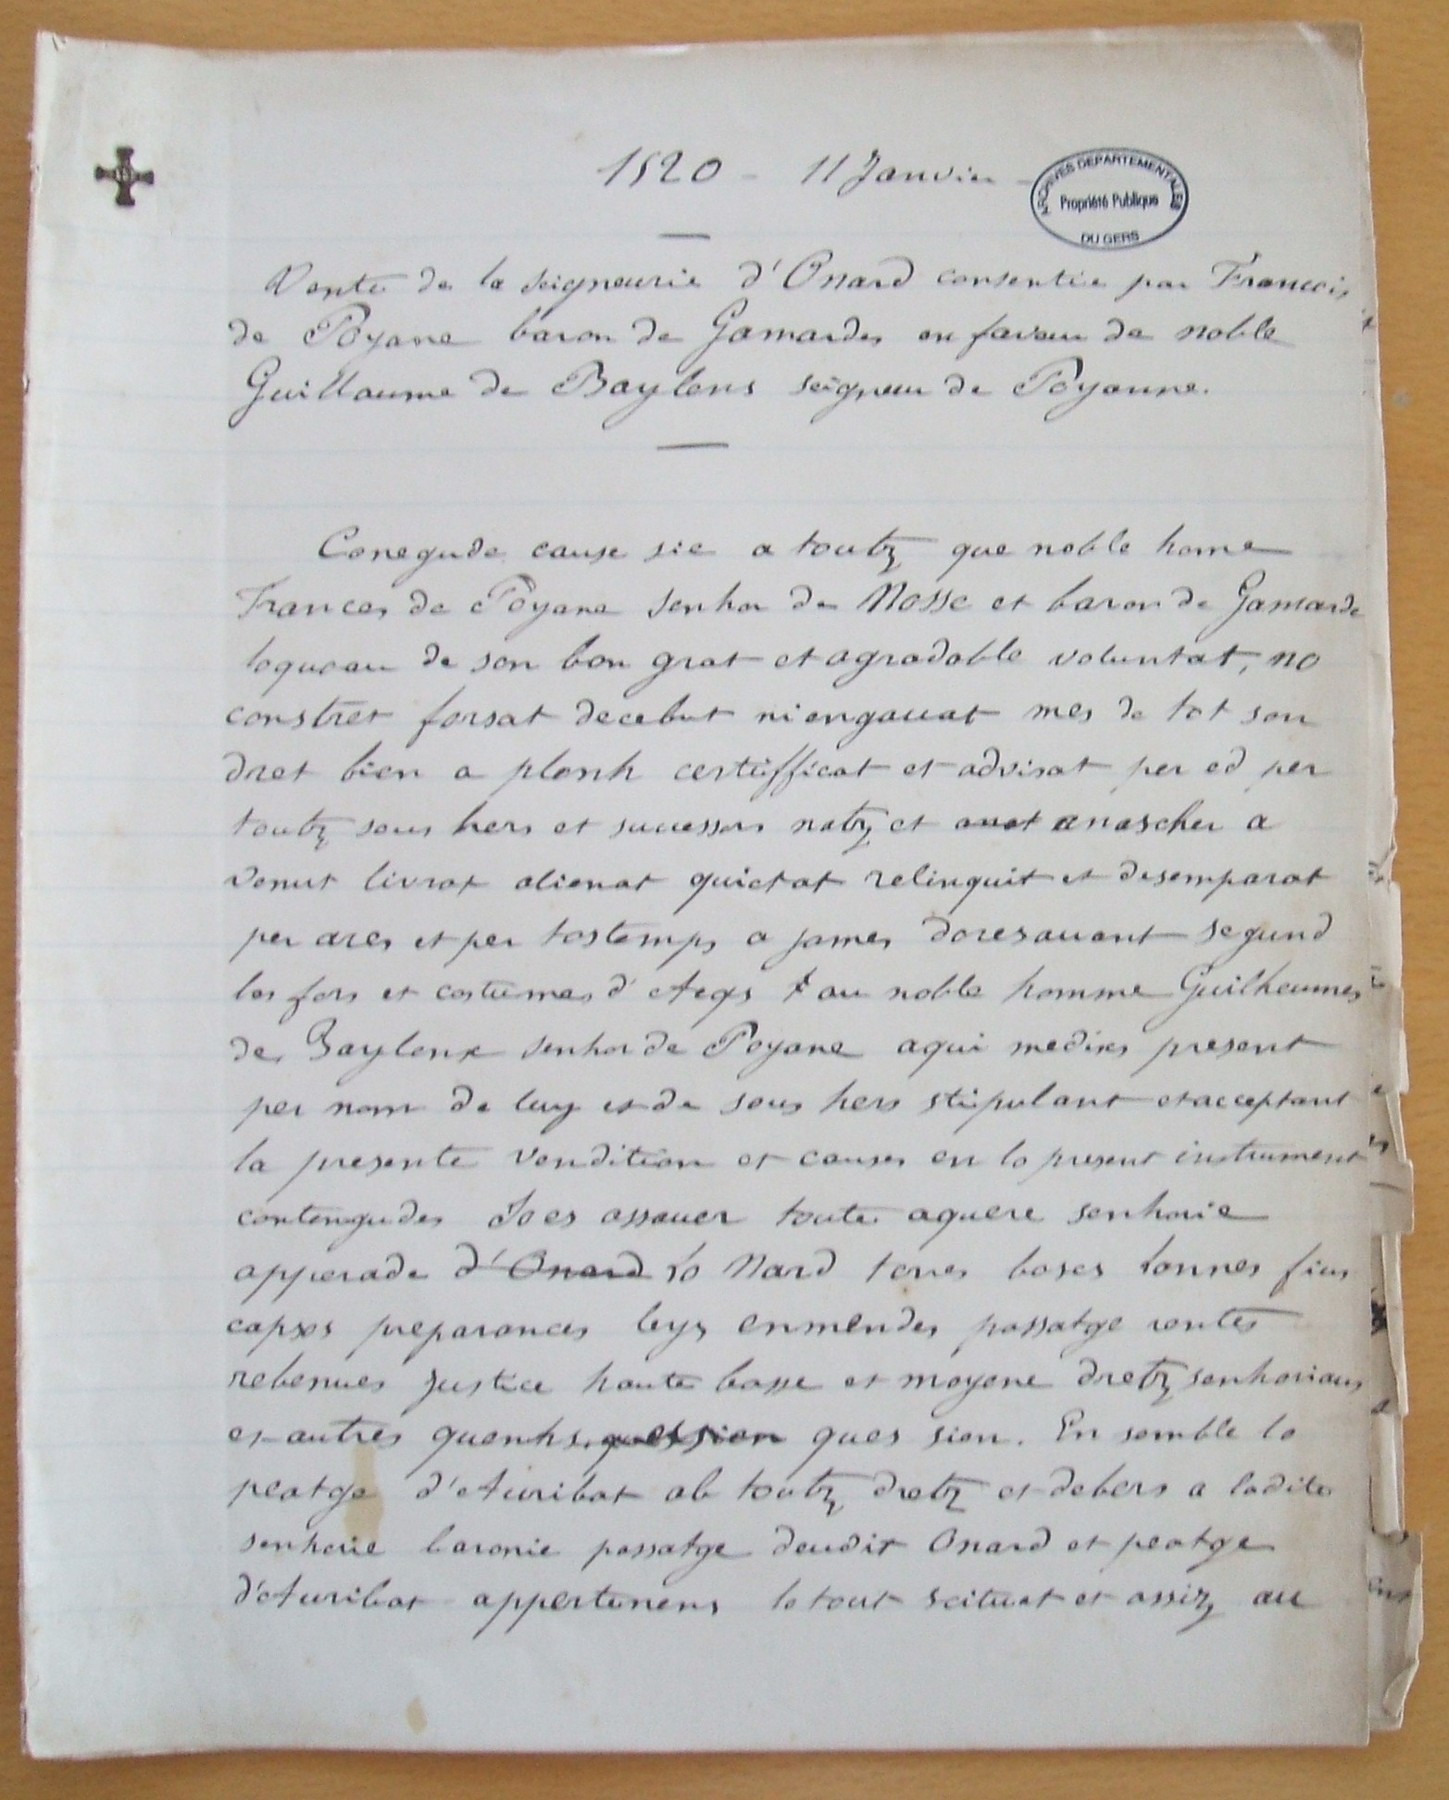 1520 - 11 Janvier -
ARCHIVES DEPARTEMENTALES
Propriété Publique
DU GERS
Vente de la seigneurie d'Onard consentie par Francois
de Poyane baron de Gamardes en faveur de noble
Guillaume de Baylens seigneur de Poyanne.
Conegude cause sie a toutz que noble home
Frances de Poyane senhor de Nosse et baron de Gamarde
loquoau de son bon grat et agradable voluntat, no
constret forsat decebut ni enganat mes de tot son
dret bien a plenh certifficat et advisat per ed per
toutz sous hers et successors natz et anascher a
venut livrat alienat quictat relinquit et desemparat
per ares et per tostemps a james doresauant segund
los fors et costumes d'Acqs au noble homme Guilheumes
de Baylenx senhor de Poyane aqui medixs present
per nom de luy et de sous hers stipulant et acceptant
la presente vendition et causes en lo present instrument
contengudes So es assauer toute aquere senhorie
apperade d'Onard Nard terres boscs fius
capsos preparances leys enmendes passatge rentes
rebenues justice haute basse et moyene dretz senhoriaus
et autres quenhs quession ques sien. En semble lo
peatge d'Auribat ab toutz dretz et debers a ladite
senhorie baronie passatge deudit Onard et peatge
d'Auribat appertenens lo tout scituat et assiz au